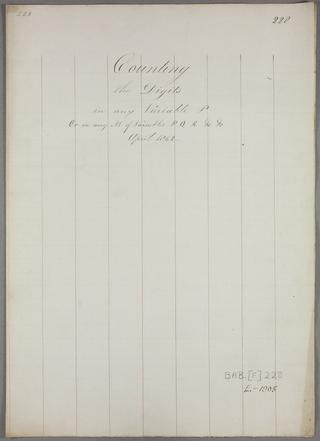 228
220
Counting
the Digits
in any Variable P
Or in any M of Variables P Q R &c &c
April 1842
BAB.[F] 220
E.-1905